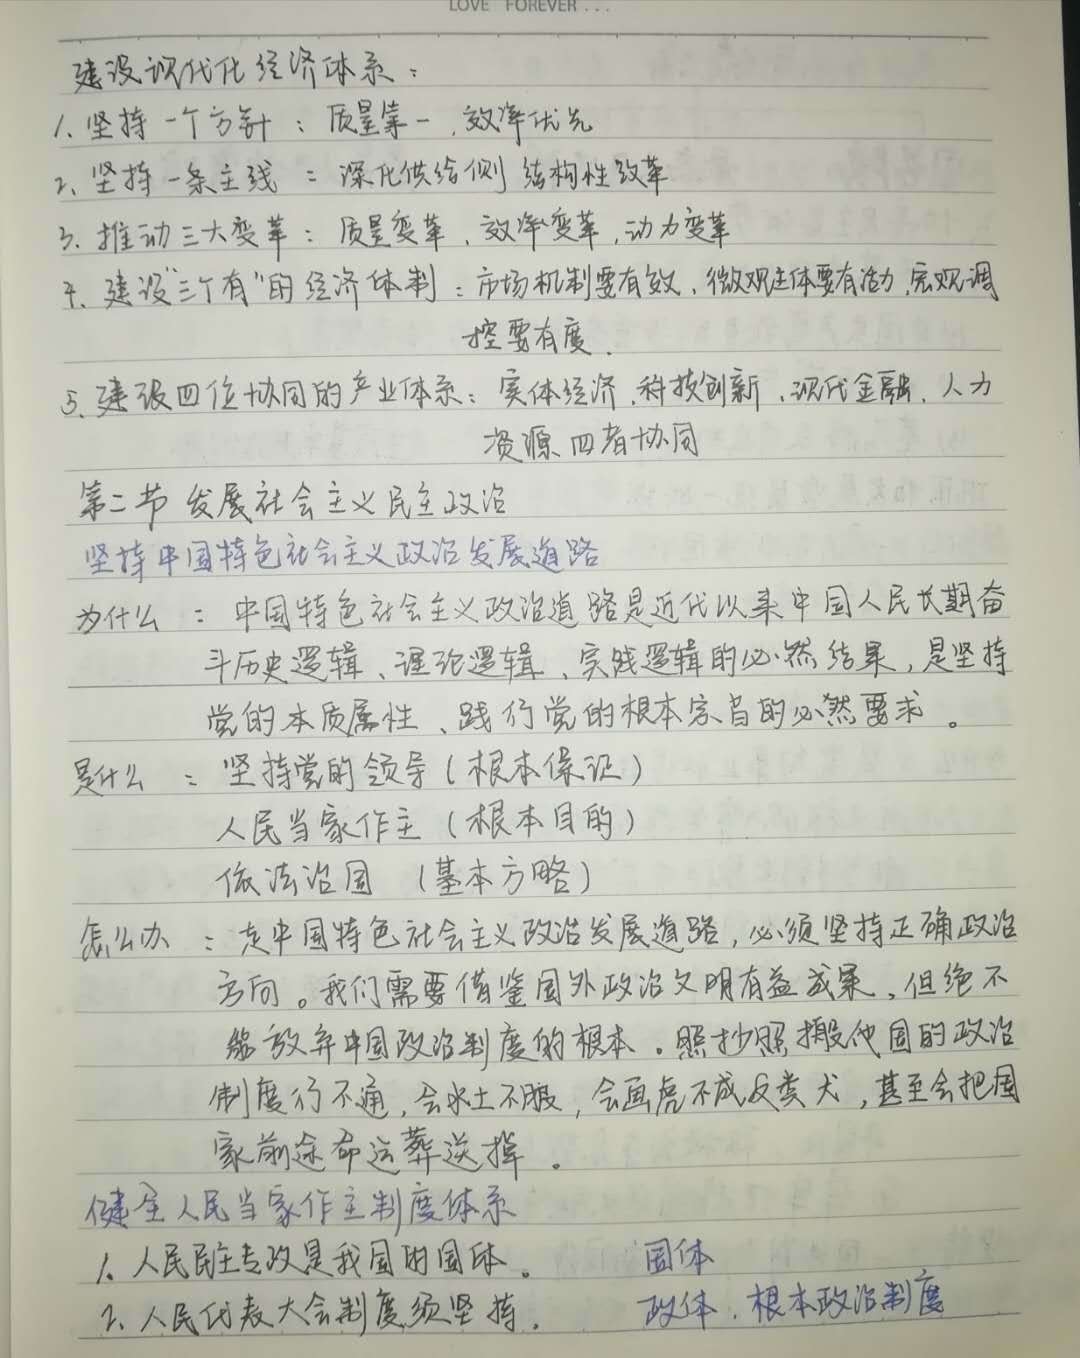 LOVE FOREVER...
建设现代化经济体系：
1、坚持一个方针：质量第一，效率优先
2、坚持一条主线：深化供给侧结构性改革
3、推动三大变革：质量变革、效率变革，动力变革
4、建设"三个有"的经济体制：市场机制要有效、微观主体要有活力，宏观调
控要有度、
5、建设四位协同的产业体系：实体经济、科技创新、现代金融、人力
资源四者协同
第二节 发展社会主义民主政治
坚持中国特色社会主义政治发展道路
为什么：中国特色社会主义政治道路是近代以来中国人民长期奋
斗历史逻辑、理论逻辑、实践逻辑的必然结果，是坚持
党的本质属性、践行党的根本宗旨的必然要求。
是什么：坚持党的领导（根本保证）
人民当家作主（根本目的）
依法治国（基本方略）
怎么办：走中国特色社会主义政治发展道路，必须坚持正确政治
方向。我们需要借鉴国外政治文明有益成果，但绝不
能放弃中国政治制度的根本。照抄照搬他国的政治
制度行不通，会水土不服，会画虎不成反类犬，甚至会把国
家前途命运葬送掉。
健全人民当家作主制度体系
1、人民民主专政是我国的国体。 国体
2、人民代表大会制度须坚持。 政体、根本政治制度